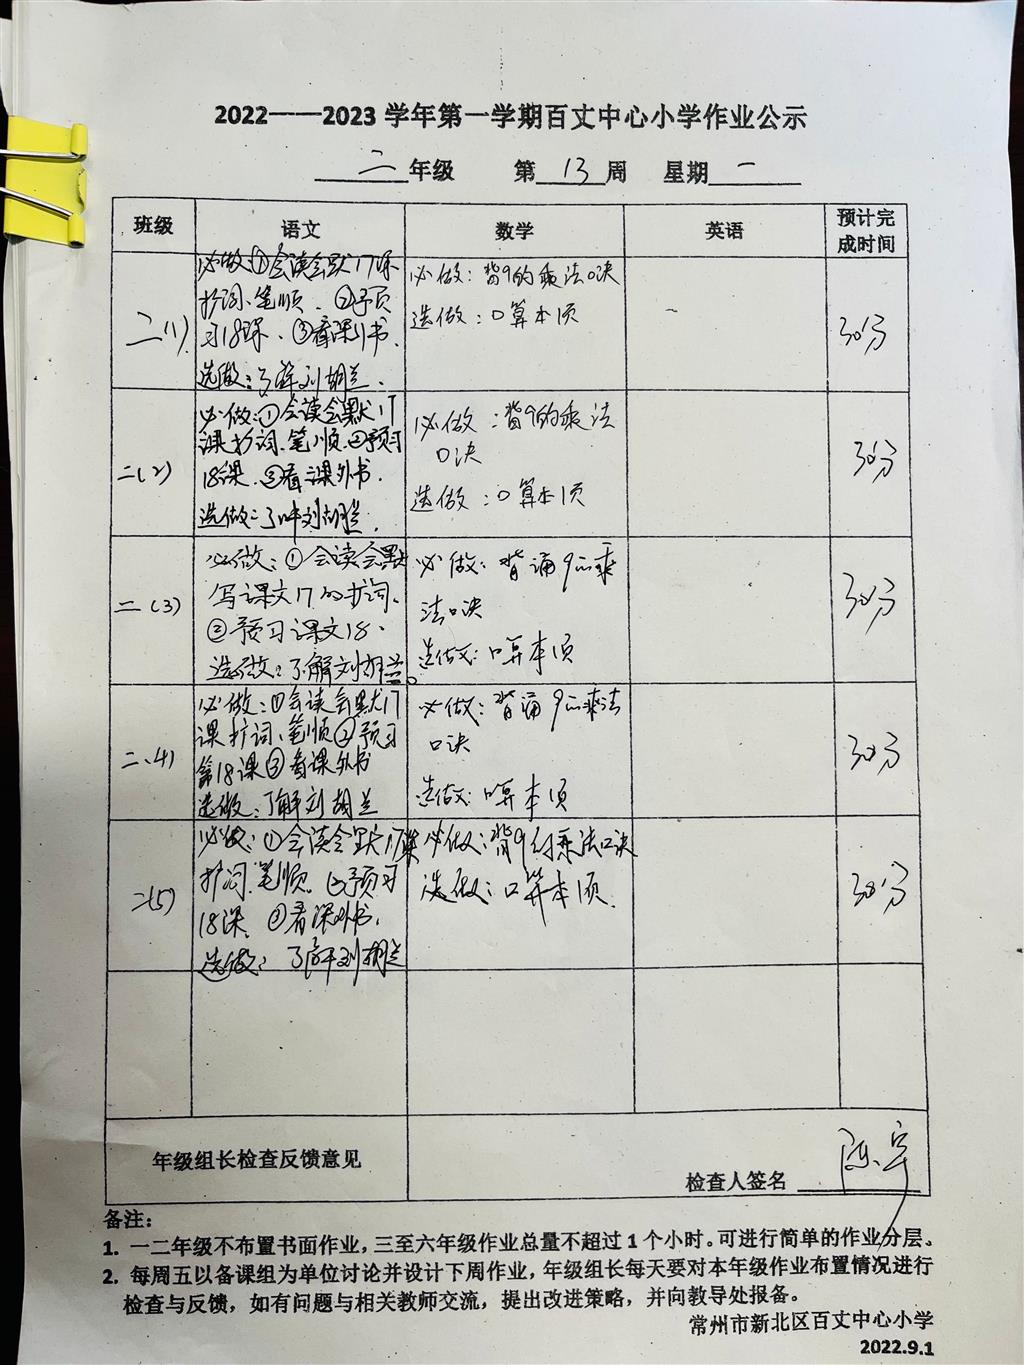 2022——2023 学年第一学期百丈中心小学作业公示
二 年级 第 13 周 星期 一
班级 语文 数学 英语 预计完成时间
必做:①会读会默17课
扩词、笔顺.②预
习18课.③看课外书.
选做:了解刘胡兰.
二(1)
必做:背9的乘法口决
选做:口算本1页
30分
必做:①会读会默17
课扩词.笔顺.②预习
18课.③看课外书.
选做:了解刘胡兰.
二(2)
必做:背9的乘法
口决
选做:口算本1页
30分
必做:①会读会默
写课文17的扩词.
②预习课文18.
选做:了解刘胡兰。
二(3)
必做:背诵9的乘
法口决
选做:口算本1页
30分
必做:①会读会默17
课扩词、笔顺②预习
第18课③看课外书
选做:了解刘胡兰
二(4)
必做:背诵9的乘法
口诀
选做:口算本1页
30分
必做:①会读会默17课
扩词.笔顺.②预习
18课.③看课外书.
选做:了解刘胡兰
二(5)
必做:背9的乘法口诀
选做:口算本1页.
30分
年级组长检查反馈意见
检查人签名
备注:
1. 一二年级不布置书面作业，三至六年级作业总量不超过 1 个小时。可进行简单的作业分层、
2. 每周五以备课组为单位讨论并设计下周作业，年级组长每天要对本年级作业布置情况进行
检查与反馈，如有问题与相关教师交流，提出改进策略，并向教导处报备。
常州市新北区百丈中心小学
2022.9.1